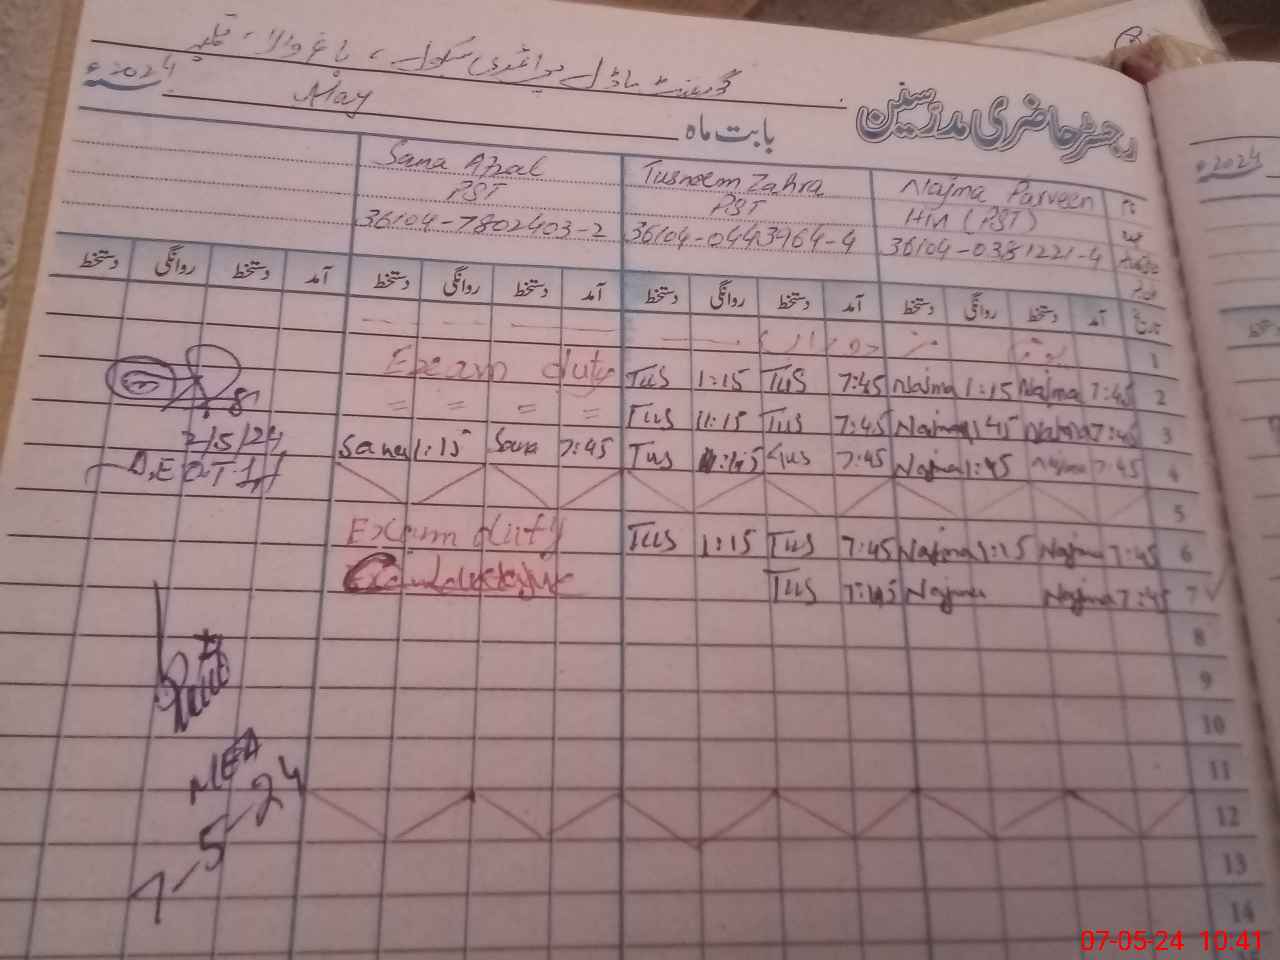 گورنمنٹ ماڈل پرائمری سکول، باغ والا،
رجسٹر حاضری مدرسین
بابت ماہ May 2024ء
Najma Parveen Tusneem Zahra Sana Afzal
H/M (PST) PST PST
36104-0381221-4 36104-0443964-4 36104-7802403-2
تاریخ آمد دستخط روانگی دستخط آمد دستخط روانگی دستخط آمد دستخط روانگی دستخط آمد دستخط روانگی دستخط
1
Exam duty Tus 1:15 Tus 7:45 Najma 1:15 Najma 7:45 2
= = = = Tus 1:15 Tus 7:45 Najma 1:45 Najma 7:45 3
Sana 1:15 Sana 7:45 Tus 1:45 Tus 7:45 Najma 1:45 Najma 7:45 4
5
Exam duty Tus 1:15 Tus 7:45 Najma 1:15 Najma 7:45 6
Tus 7:45 Najma Najma 7:45 7
8
9
10
11
12
13
14
2/5/24
MEA
7-5-24
2024ء
دستخط
07-05-24 10:41